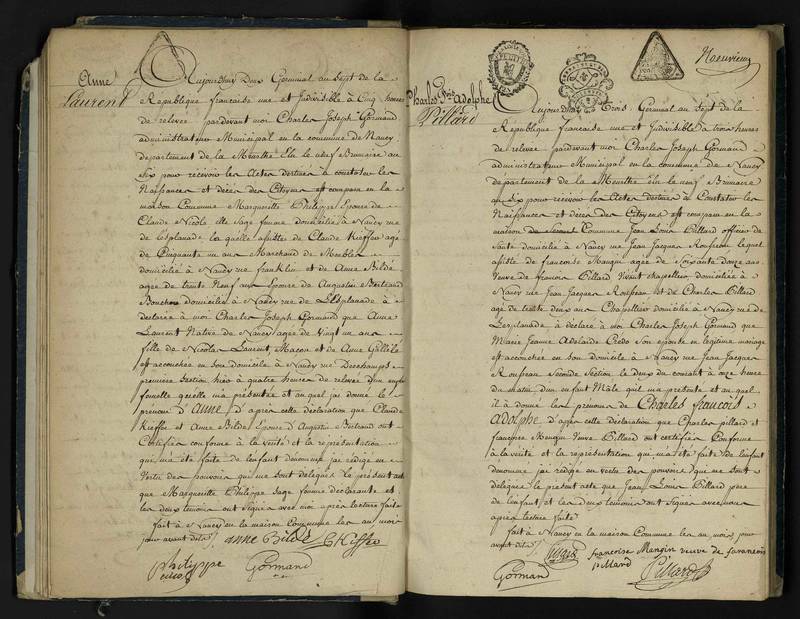 Anne
Laurent
Aujourd'huy Deux Germinal an Sept de la
République francaise une et Indivisible à Cinq heures
de relevée pardevant moi Charles Joseph Gormand
administrateur Municipal en la commune de Nancy
département de la Meurthe Elu le neuf Brumaire an
Six pour recevoir les Actes destinés à constater les
Naissances et décès des Citoyens est comparu en la
maison Commune Marguerite Philippe Epouse de
Claude Nicolle elle Sage femme domiciliée à Nancy rue
de Lesplanade laquelle assistée de Claude Kieffer agé
de Cinquante un ans Marchand de Meubles
domicilié à Nancy rue franklin et de Anne Bildé
agée de trente Neuf ans Epouse de Augustin Bertrand
Boucher domiciliés à Nancy rue de L'Esplanade à
déclaré à moi Charles Joseph Gormand que Anne
Laurent Native de Nancy agée de Vingt un ans
fille de Nicolas Laurent, Macon et de Anne
est accouchée en son domicile à Nancy rue Derchamps
première Section hier à quatre heures de relevée d'un enfant
femelle qu'elle m'a présentée et au quel j'ai donné le
prénom d'Anne d'après cette déclaration que Claude
Kieffer et Anne Bildé Epouse d'Augustin Bertrand ont
Certifiée conforme à la vérité et la représentation
qui m'a été faite de l'enfant dénommé j'ai rédigé en
Vertu des pouvoirs qui me sont délégués le présent acte
que Marguerite Philippe Sage femme déclarante et
les deux témoins ont signés avec moi après lecture faite
fait à Nancy en la maison Commune les an mois
jour avant dits anne Bildé C Kieffer
philippe
Gormand
Charles fois Adolphe
Pillard
Aujourd'huy Trois Germinal an Sept de la
République francaise une et Indivisible à trois heures
de relevée pardevant moi Charles Joseph Gormand
administrateur Municipal en la commune de Nancy
département de la Meurthe Elu le neuf Brimaire
an Six pour recevoir les Actes destinés à Constater les
Naissances et décès des Citoyens est comparu en la
maison Commune Jean Louis Pillard officier de
Santé domicilié à Nancy rue Jean Jacques Rousseau lequel
assisté de francoise Mangin agée de Soixante douze ans
Veuve de francois Pillard Vivant chapellier domiciliée à
Nancy rue Jean Jacques Rousseau et de Charles Pillard
agé de trente deux ans Chapellier domicilié à Nancy rue de
Lesplanade à déclaré à moi Charles Joseph Gormand que
Marie Jeanne Adelaide Credo Son épouse en légitime mariage
est accouchée en son domicile à Nancy rue Jean Jacques
Rousseau Seconde Section le deux du courant à onze heures
du matin d'un enfant Mâle qu'il m'a présenté et au quel
il à donné les prénoms de Charles francois
Adolphe d'après cette déclaration que Charles pillard et
francoise Mangin Veuve Pillard ont certifiée Conforme
à la vérité et la représentation qui m'a été faite de l'enfant
dénommé j'ai rédigé en vertu des pouvoirs qui me sont
délégués le présent acte que Jean Louis Pillard père
de l'enfant et les deux témoins ont signés avec moi
après lecture faite
fait à Nancy en la maison Commune les an mois jour
avant dits Pillard francoise Mangin veuve de francois
pillard
Gormand
Pillard